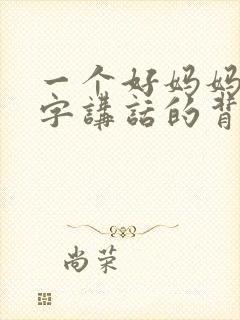 一个好妈妈
字講話的背
尚荣